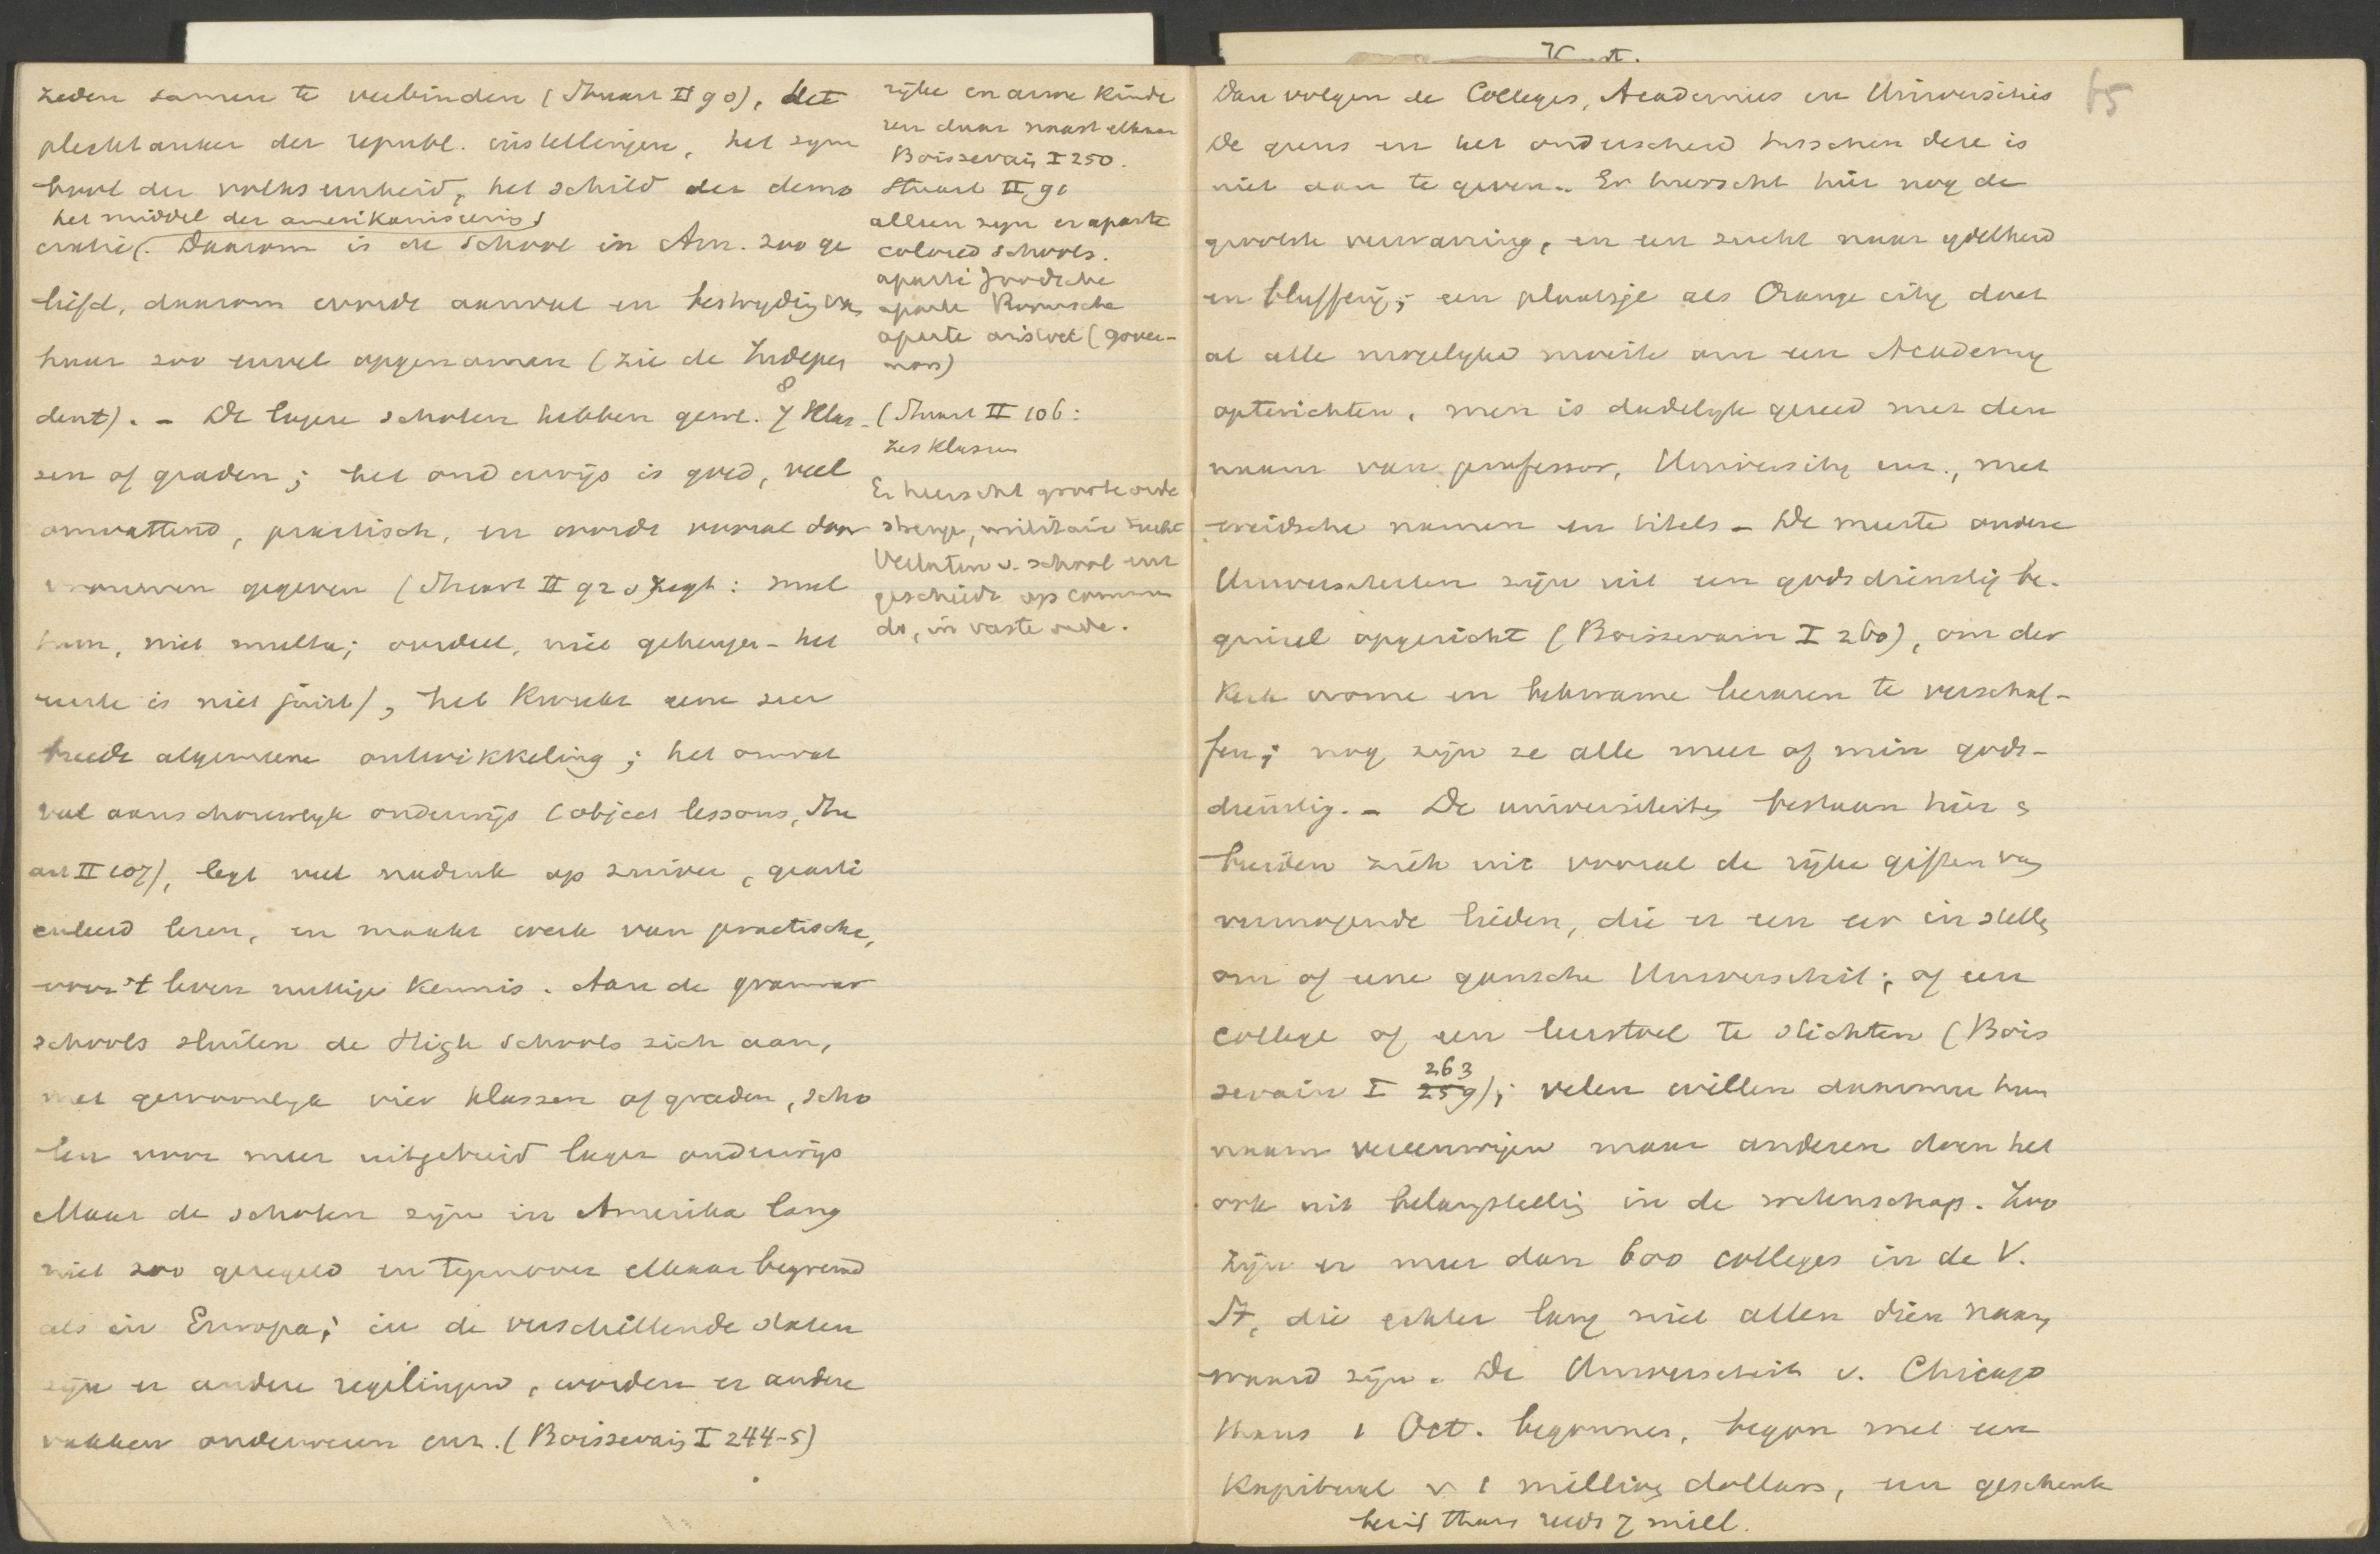 zeden samen te verbinden (Stuart II 90), het
plechtanker der republ. instellingen, het sym
bool der volkseenheid, het schild der demo
het middel der amerikaniseering
cratie. Daarom is de school in Am. zoo ge
liefd, daarom wordt aanval en bestrijding van
haar zoo euvel opgenomen (zie de Indepen
dent). - De lagere scholen hebben gew. 7 8 klas-
sen of graden; het onderwijs is goed, veel
omvattend, practisch, en wordt vooral door
vrouwen gegeven (Stuart II 92 zegt: mul
tum, niet multa; oordeel, niet geheugen - het
eerste is niet juist), het kweekt eene zeer
breede algemeene ontwikkeling; het omvat
veel aanschouwelyk onderwijs (object lessons, Stu
art II 107), legt veel nadruk op zuiver, gearti
culeerd lezen, en maakt werk van practische,
voor 't leven nuttige kennis. Aan de grammar
schools sluiten de High schools zich aan,
met gewoonlyk vier klassen of graden, scho
len voor meer uitgebreid lager onderwijs
Maar de scholen zijn in Amerika lang
niet zoo geregeld en tegenover elkaar begrensd
als in Europa; in de verschillende staten
zijn er andere regelingen, worden er andere
vakken onderwezen enz. (Boissevain I 244-5)
rijke en arme kinde
ren daar naast elkaar
Boissevain I 250.
Stuart II 90
alleen zyn er aparte
colored schools.
aparte Joodsche
aparte Roomsche
aparte aristocr (gover-
nors)
(Stuart II 106:
zes klassen
Er heerscht groote orde
strenge, militaire tucht
Verlaten v. school enz
geschiedt op comman
do, in vaste orde.
65
Dan volgen de Colleges, Academies en Universities
De grens en het onderscheid tusschen deze is
niet aan te geven. Er heerscht hier nog de
grootste verwarring, en een zucht naar ydelheid
en blufferij; een plaatsje als Orange city doet
al alle mogelyke moeite om een Academy
opterichten, men is dadelyk gereed met den
naam van professor, University enz., met
weidsche namen en titels - De meeste andere
Universiteiten zijn uit een godsdienstig be-
ginsel opgericht (Boissevain I 260), om der
Kerk vrome en bekwame leeraren te verschaf-
fen; nog zijn ze alle meer of min gods-
dienstig. - De universiteiten bestaan hier &
breiden zich uit vooral de rijke giften van
vermogende lieden, die er een eer in stellen
om of eene gansche Universiteit; of een
college of een leerstoel te stichten (Bois
263
sevain I 259); velen willen daarmee hun
naam vereeuwigen maar anderen doen het
ook uit belangstelling in de wetenschap. Zoo
zijn er meer dan 600 colleges in de V.
St, die echter lang niet allen dien naam
waard zijn. De Universiteit v. Chicago
thans 1 Oct. begonnen, begon met een
Kapitaal v 1 million dollars, een geschenk
bezit thans reeds 7 mill.